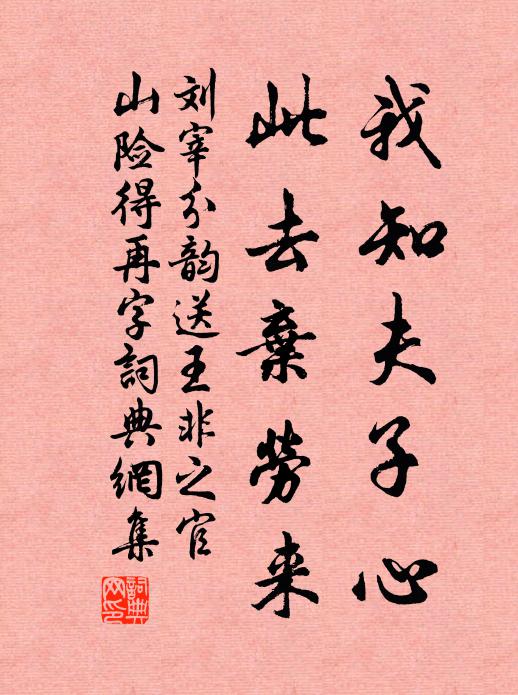 我知夫子心
此去棄勞来
刘宰分韵送王非之官
山险得再字詞典網集
詞典
网印